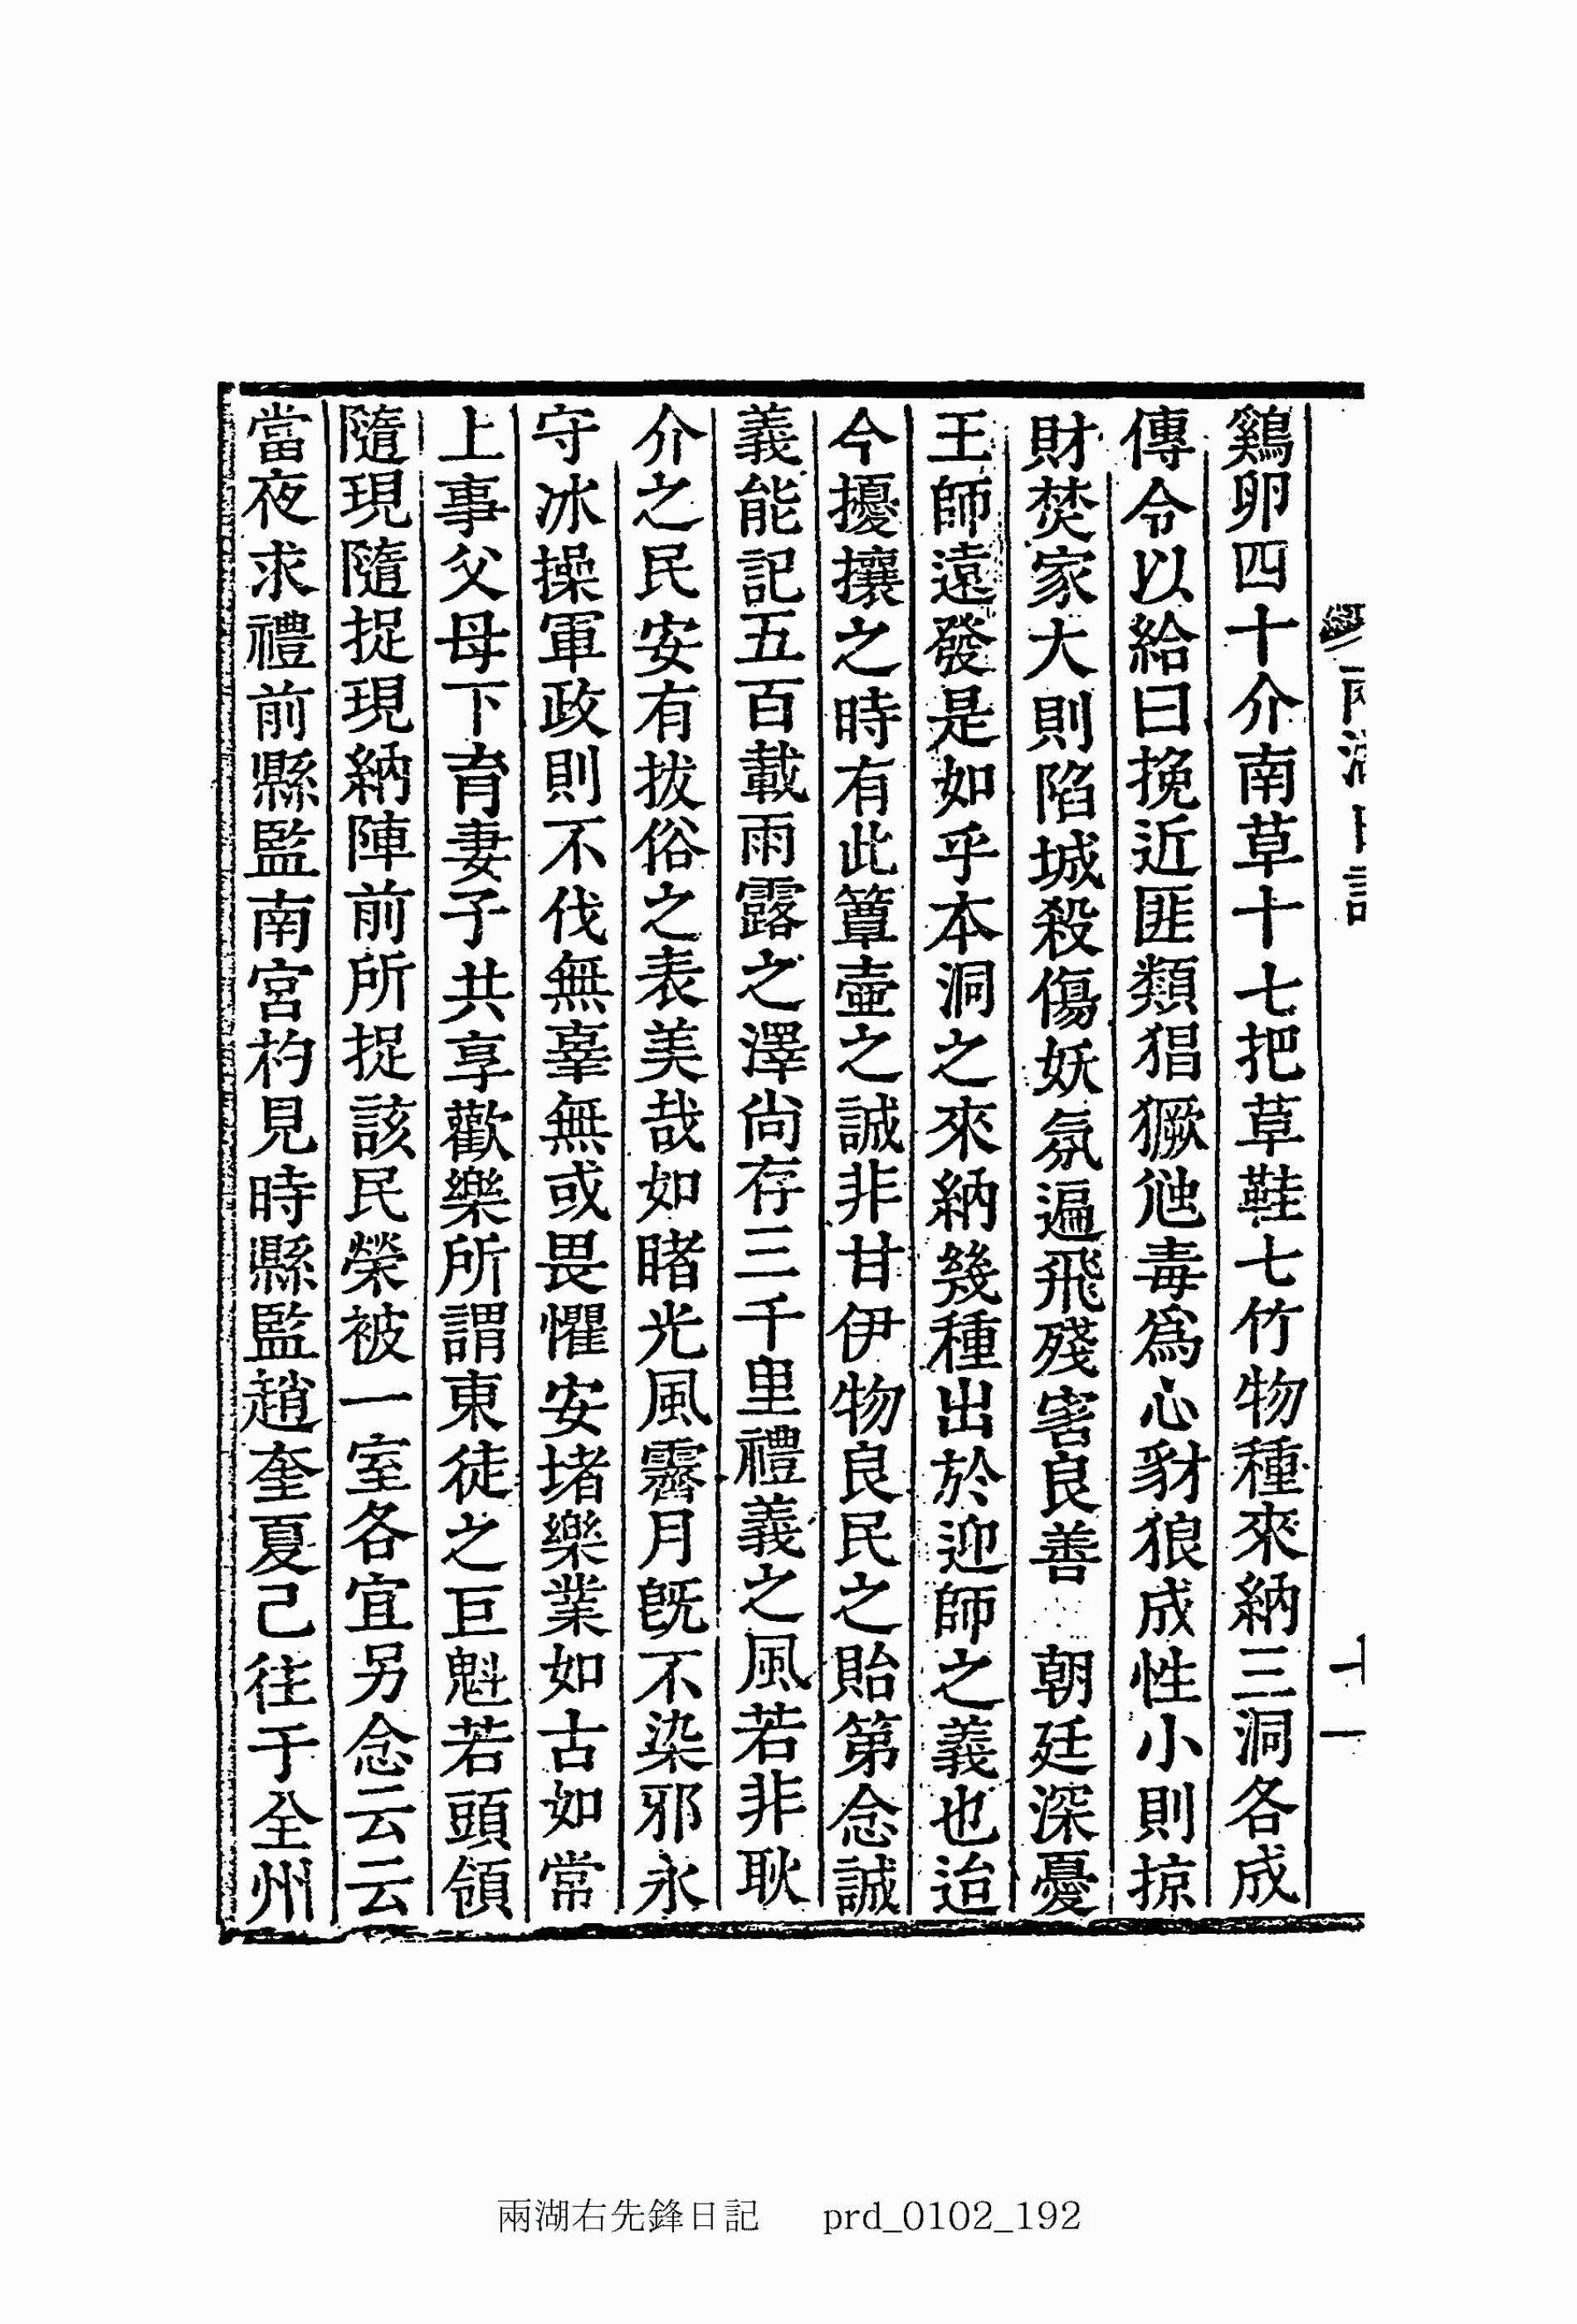 兩湖日記
十一
鷄卵四十介南草十七把草鞋七竹物種來納三洞各成
傳令以給曰挽近匪類猖獗虺毒爲心豺狼成性小則掠
財焚家大則陷城殺傷妖氛遍飛殘害良善 朝廷深憂
王師遠發是如乎本洞之來納幾種出於迎師之義也迨
今擾攘之時有此簞壼之誠非甘伊物良民之貽第念誠
義能記五百載雨露之澤尙存三千里禮義之風若非耿
介之民安有拔俗之表美哉如睹光風霽月旣不染邪永
守冰操軍政則不伐無辜無或畏懼安堵樂業如古如常
上事父母下育妻子共享歡樂所謂東徒之巨魁若頭領
隨現隨捉現納陣前所捉該民榮被一室各宜另念云云
當夜求禮前縣監南宮杓見時縣監趙奎夏己往于全州
兩湖右先鋒日記 prd_0102_192